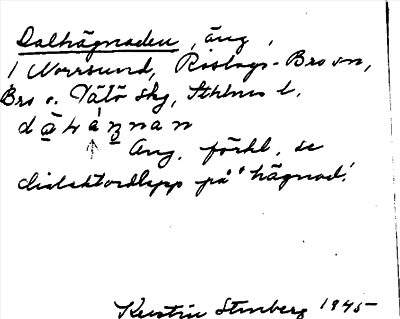 Dalhägnaden, äng,
i Norrsund, Roslags-Bro sn,
Bro o. Vätö skg, Sthlms l.
Äng, förkl. se
dialektordlapp på "hägnad".
Kerstin Stenberg 1945